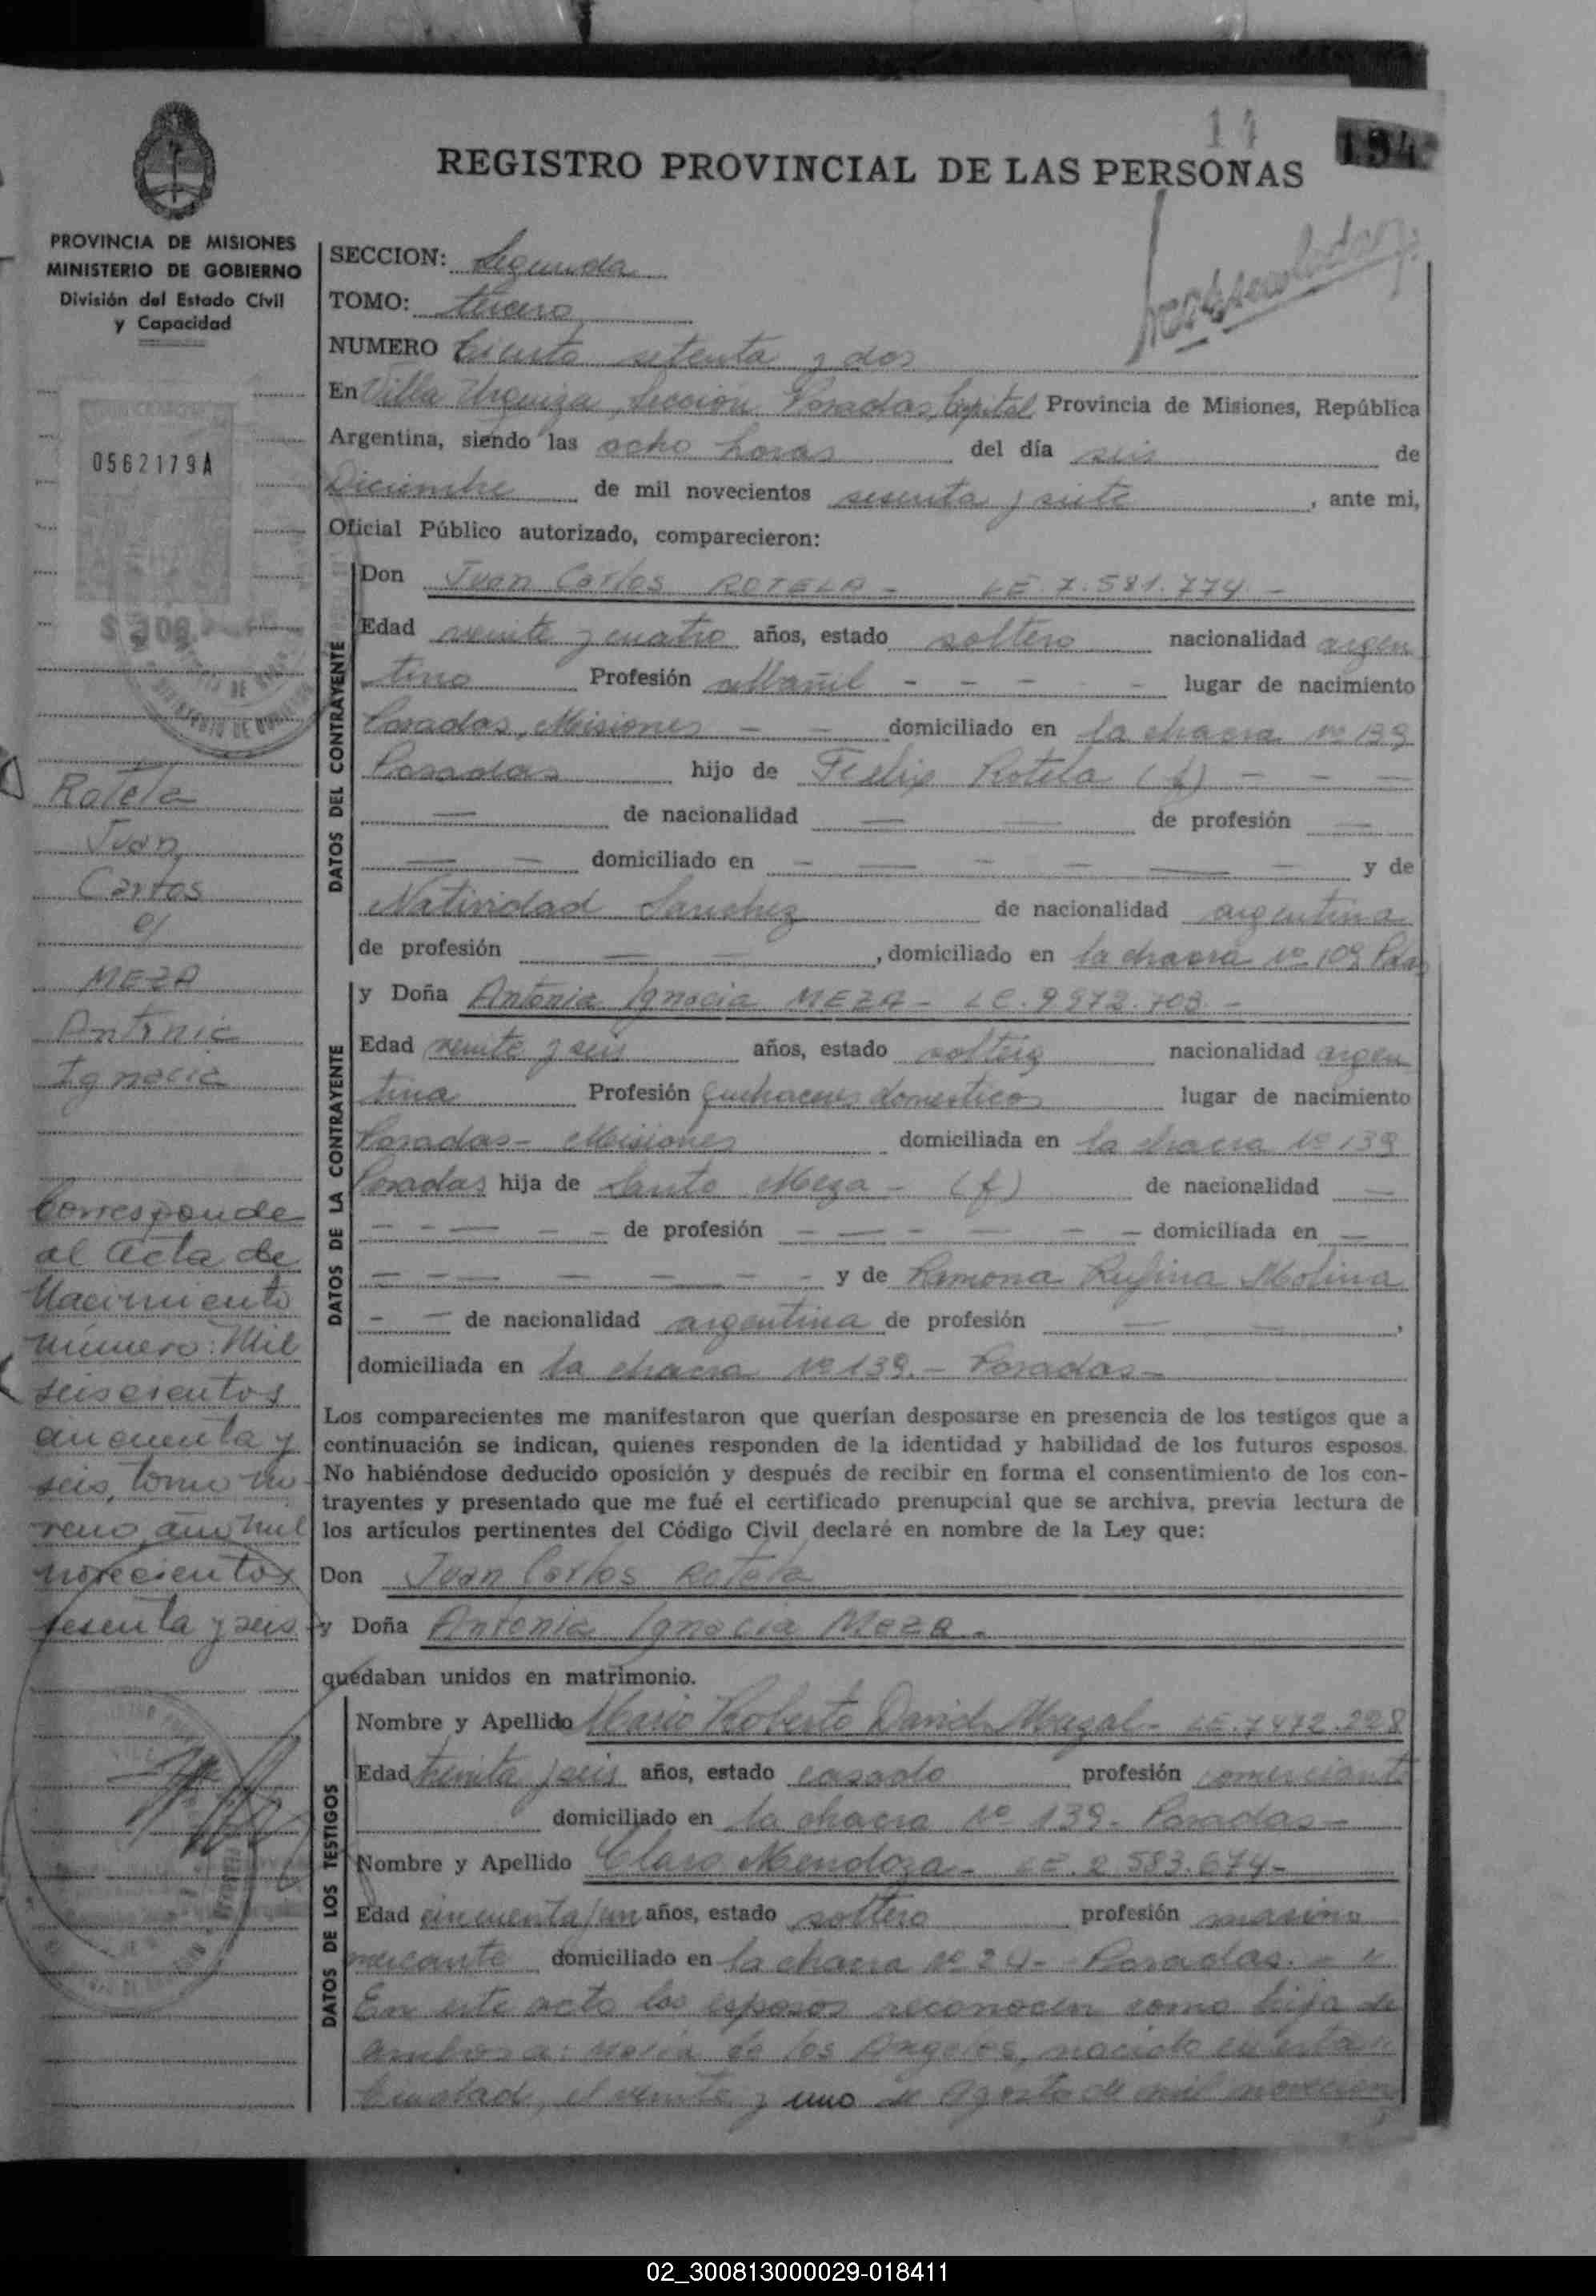 194
REGISTRO PROVINCIAL DE LAS PERSONAS
PROVINCIA DE MISIONES
MINISTERIO DE GOBIERNO
División del Estado Civil
y Capacidad
0562179A
Rotela
Juan
Carlos
c/
MEZA
Antonia
Ignacia
Corresponde
al acta de
Nacimiento
número: Mil
seiscientos
cincuenta y
seis, tomo no-
veno, año mil
novecientos
sesenta y seis
SECCION: Segunda
TOMO: tercero
NUMERO Ciento setenta y dos
En Villa Urquiza, Sección Posadas, Capital Provincia de Misiones, República
Argentina, siendo las ocho horas del día seis de
Diciembre de mil novecientos sesenta y siete, ante mi,
Oficial Público autorizado, comparecieron:
DATOS DEL CONTRAYENTE
Don Juan Carlos ROTELA - LE. 7.581.774 -
Edad veinte y cuatro años, estado soltero nacionalidad argen
tino Profesión albañil - - - - lugar de nacimiento
Posadas, Misiones - - domiciliado en la chacra nº 139
Posadas hijo de Felix Rotela (f) - - -
— de nacionalidad — — de profesión —
— — domiciliado en — — — — — — y de
Natividad Sanchez de nacionalidad argentina
de profesión — —, domiciliado en la chacra Nº 109 Pdas
DATOS DE LA CONTRAYENTE
y Doña Antonia Ignacia MEZA - LC. 9.972.703 -
Edad veinte y seis años, estado soltera nacionalidad argen
tina Profesión quehaceres domesticos lugar de nacimiento
Posadas - Misiones domiciliada en la chacra Nº 139
Posadas hija de Santo Meza - (f) de nacionalidad —
- - — - - de profesión - — - - - - domiciliada en —
— - — — — — - - y de Ramona Rufina Molina
- — de nacionalidad argentina de profesión — —,
domiciliada en la chacra Nº 139. - Posadas -
Los comparecientes me manifestaron que querían desposarse en presencia de los testigos que a
continuación se indican, quienes responden de la identidad y habilidad de los futuros esposos.
No habiéndose deducido oposición y después de recibir en forma el consentimiento de los con-
trayentes y presentado que me fué el certificado prenupcial que se archiva, previa lectura de
los artículos pertinentes del Código Civil declaré en nombre de la Ley que:
Don Juan Carlos Rotela
y Doña Antonia Ignacia Meza -
quedaban unidos en matrimonio.
DATOS DE LOS TESTIGOS
Nombre y Apellido Mario Roberto David Mazal - LE. 7.472.228
Edad treinta y seis años, estado casado profesión comerciante
domiciliado en la chacra Nº 139 - Posadas -
Nombre y Apellido Claro Mendoza - LE. 2.583.674 -
Edad cincuenta y un años, estado soltero profesión marino
mercante domiciliado en la chacra Nº 24 - Posadas. -
En este acto los esposos reconocen como hija de
ambos a: Maria de los Angeles, nacida en esta
Ciudad, el veinte y uno de Agosto de mil novecien
02_300813000029-018411